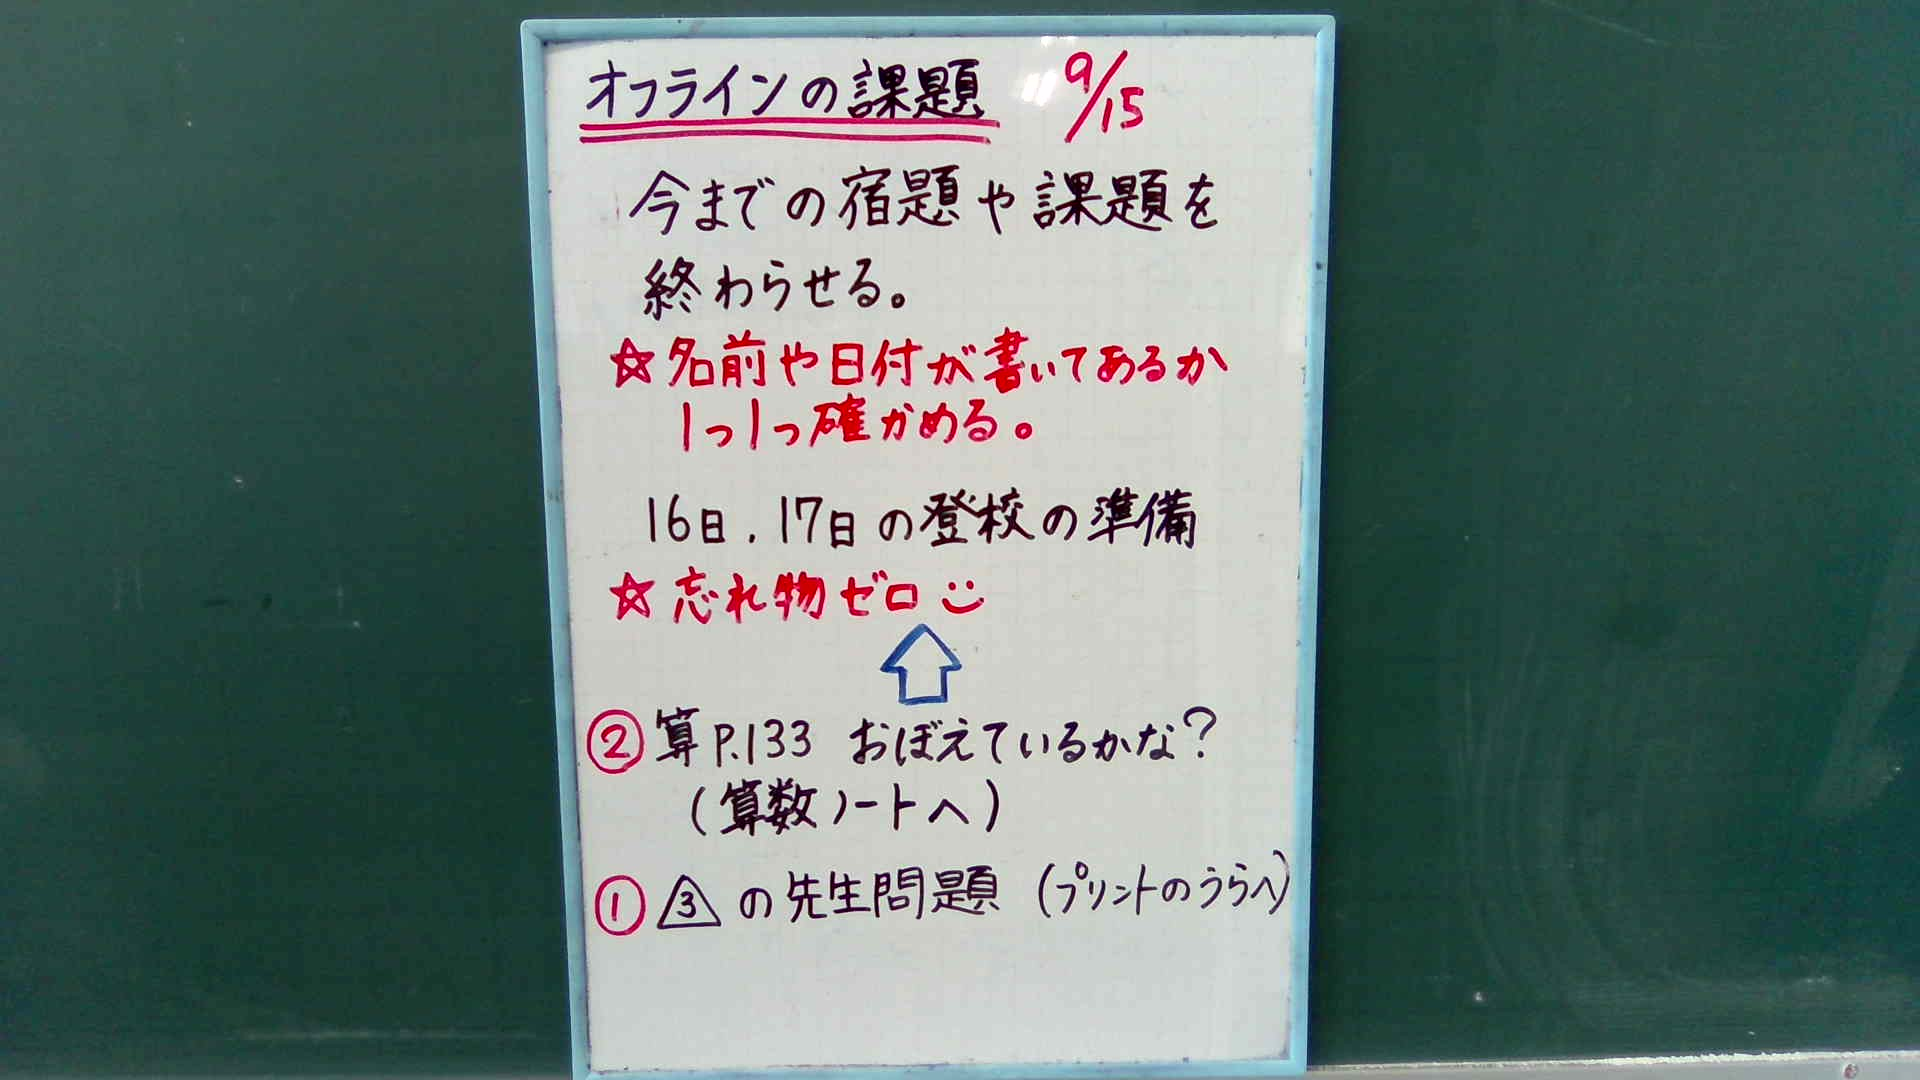 オフラインの課題 9/15
今までの宿題や課題を
終わらせる。
☆名前や日付が書いてあるか
1つ1つ確かめる。
16日,17日の登校の準備
☆忘れ物ゼロ
② 算P.133 おぼえているかな?
(算数ノートへ)
① 3の先生問題 (プリントのうらへ)